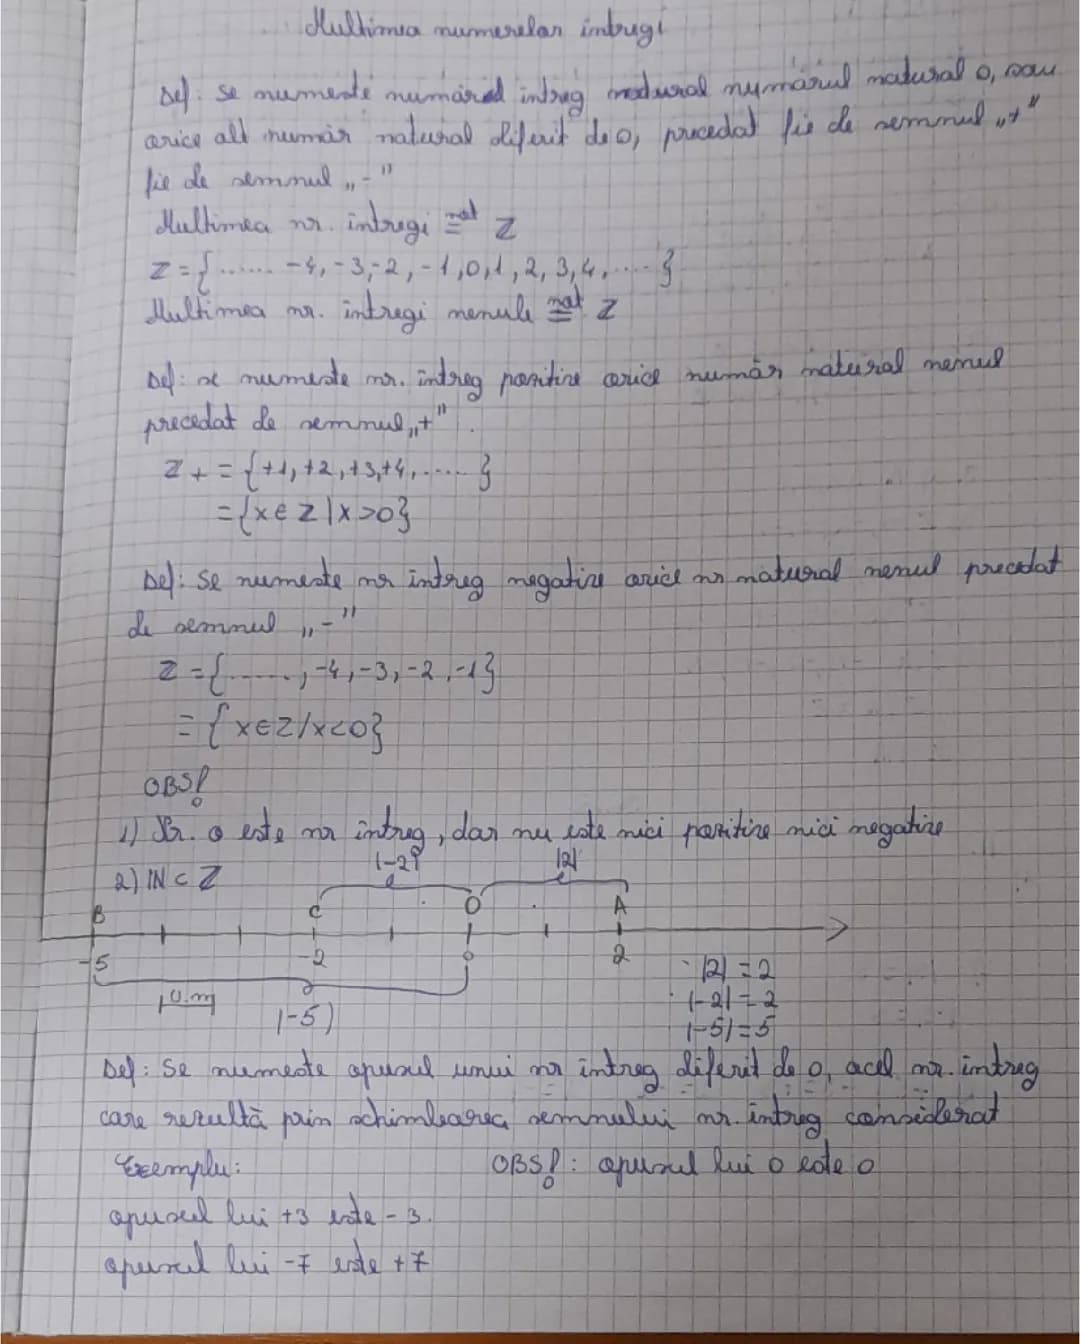 Multimea numerelor intregi
Def: Se numeste numărul intreg natural numărul natural 0, sau
orice alt număr natural diferit de 0, precedat fie de semnul „+"
fie de semnul „-"
Multimea nr. intregi not= Z
Z = {...... -4, -3, -2, -1, 0, 1, 2, 3, 4, .... }
Multimea nr. intregi nenule not= Z
Def: se numeste nr. intreg pozitiv orice număr natural nenul
precedat de semnul „+".
Z+ = {+1, +2, +3, +4, ..... }
= {x ∈ Z | x > 0}
Def: Se numeste nr intreg negativ orice nr natural nenul precedat
de semnul „-"
Z = {......, -4, -3, -2, -1}
= {x ∈ Z / x < 0}
OBS!
1) Nr. 0 este nr intreg, dar nu este nici pozitiv nici negativ
2) IN ⊂ Z
|-2| |2|
B C O A
-5 -2 0 2
1 u.m
|-5|
|2| = 2
|-2| = 2
|-5| = 5
Def: Se numeste opusul unui nr intreg diferit de 0, acel nr. intreg
care rezultă prin schimbarea semnului nr. intreg considerat
Exemplu: OBS!: opusul lui 0 este 0
opusul lui +3 este -3.
opusul lui -7 este +7